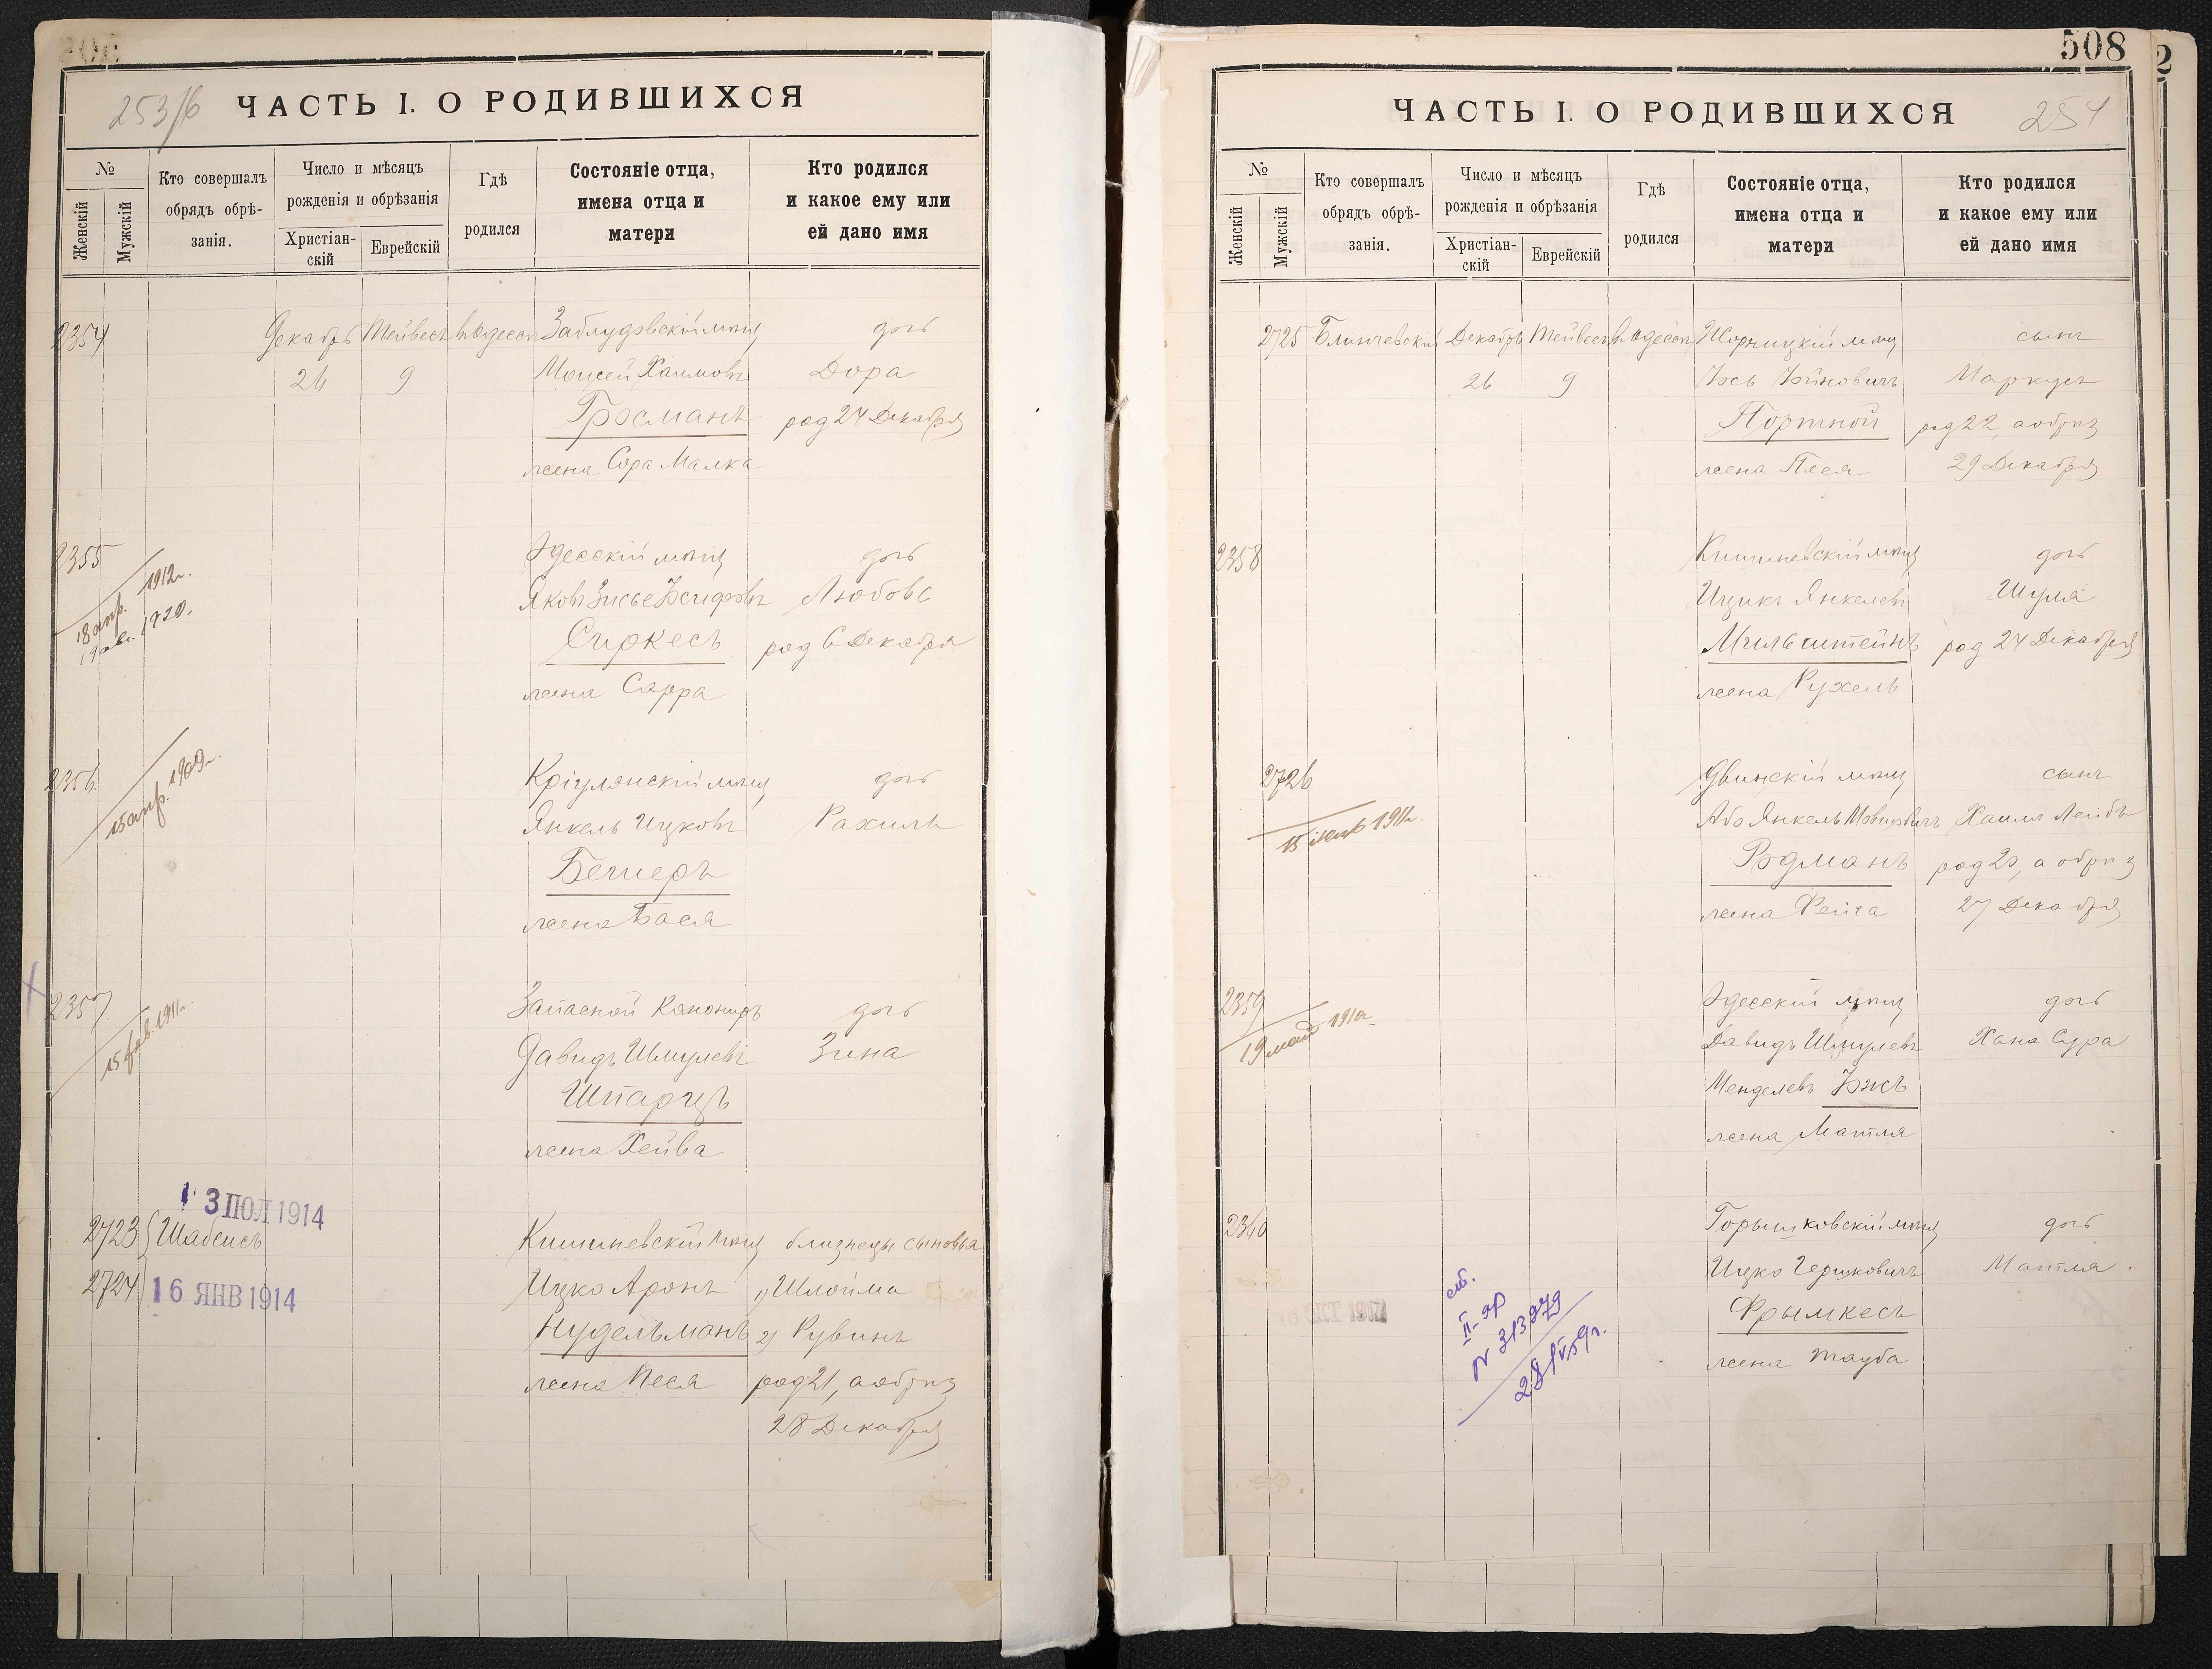 253/б
ЧАСТЬ I. О РОДИВШИХСЯ
№
Женскій
Мужскій
Кто совершалъ
обрядъ обрѣ-
занія.
Число и мѣсяцъ
рожденія и обрѣзанія
Христіан-
скій
Еврейскій
Гдѣ
родился
Состояніе отца,
имена отца и
матери
Кто родился
и какое ему или
ей дано имя
2354 Декабрь Тейвесъ въ Одессѣ Заблудовскій мѣщ дочь
26 9 Моисей Хаимовъ Дора
Гросманъ род 24 Декабря
жена Сора Малка
2355 Одесскій мѣщ дочь
18 апр. 1912г.
1920.
Любовь
Сиркесъ род 6 Декабря
жена Сарра
2356 Кріулянскій мѣщ дочь
15 апр. 1909г.
Янкель Ицковъ Рахиль
жена Бася
2357 Запасной Канониръ дочь
15 фев. 1911г.
Давидъ Шмулевъ Зина
Шпарцъ
жена Хейва
3 ПОЛ 1914
2723 Шабеисъ Кишиневскій мѣщ близнецы сыновья
2724 16 ЯНВ 1914 Ицко Аронъ 1) Шлойма
Нудельманъ 2) Рувинъ
жена Песя род 21, а обрѣз
28 Декабря
508
2
ЧАСТЬ I. О РОДИВШИХСЯ
254
№
Женскій
Мужскій
Кто совершалъ
обрядъ обрѣ-
занія.
Число и мѣсяцъ
рожденія и обрѣзанія
Христіан-
скій
Еврейскій
Гдѣ
родился
Состояніе отца,
имена отца и
матери
Кто родился
и какое ему или
ей дано имя
2725 Блинчевскій Декабрь Тейвесъ въ Одессѣ мѣщ сынъ
26 9 Маркусъ
Портной род 22, а обрѣз
жена Песя 29 Декабря
2358 Кишиневскій мѣщ дочь
Ицикъ Янкелевъ Шуля
Мильштейнъ род 24 Декабря
жена Рухель
2726 Двинскій мѣщ сынъ
Або Янкель Хаимъ Лейбъ
Родманъ род 20, а обрѣз
жена Фейга 27 Декабря
2359 Одесскій мѣщ дочь
19
Давидъ Шмулевъ Хана Сура
Менделевъ
жена Матля
2360 мѣщ дочь
Ицко Гершковичъ Матля
Фрымкесъ
жена Тауба
II-
N 313979
28/V 59г.